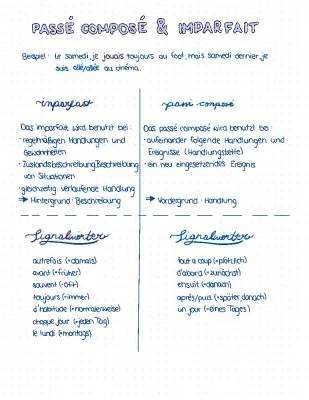 PASSÉ COMPOSÉ & IMPARFAIT
Beispiel: Le samedi, je jouais toujours au foot, mais samedi dernier, je
suis allé/allée au cinéma.
imparfait
Das imparfait wird benutzt bei:
· regelmäßigen Handlungen und
Gewohnheiten
· Zustandsbeschreibung/Beschreibung
von Situationen
· gleichzeitig verlaufende Handlung
→ Hintergrund · Beschreibung
passé composé
Das passé composé wird benutzt bei:
· aufeinander folgende Handlungen und
Ereignisse (Handlungskette)
· ein neu eingesetzendes Ereignis
→ Vordergrund · Handlung
Signalwörter
autrefois (=damals)
avant (=früher)
souvent (=oft)
toujours (=immer)
d'habitude (=normalerweise)
chaque jour (=jeden Tag)
le lundi (=montags)
Signalwörter
tout a coup (=plötzlich)
d'abord (=zunächst)
ensuit (=danach)
après/puis (=später, danach)
un jour (=eines Tages)